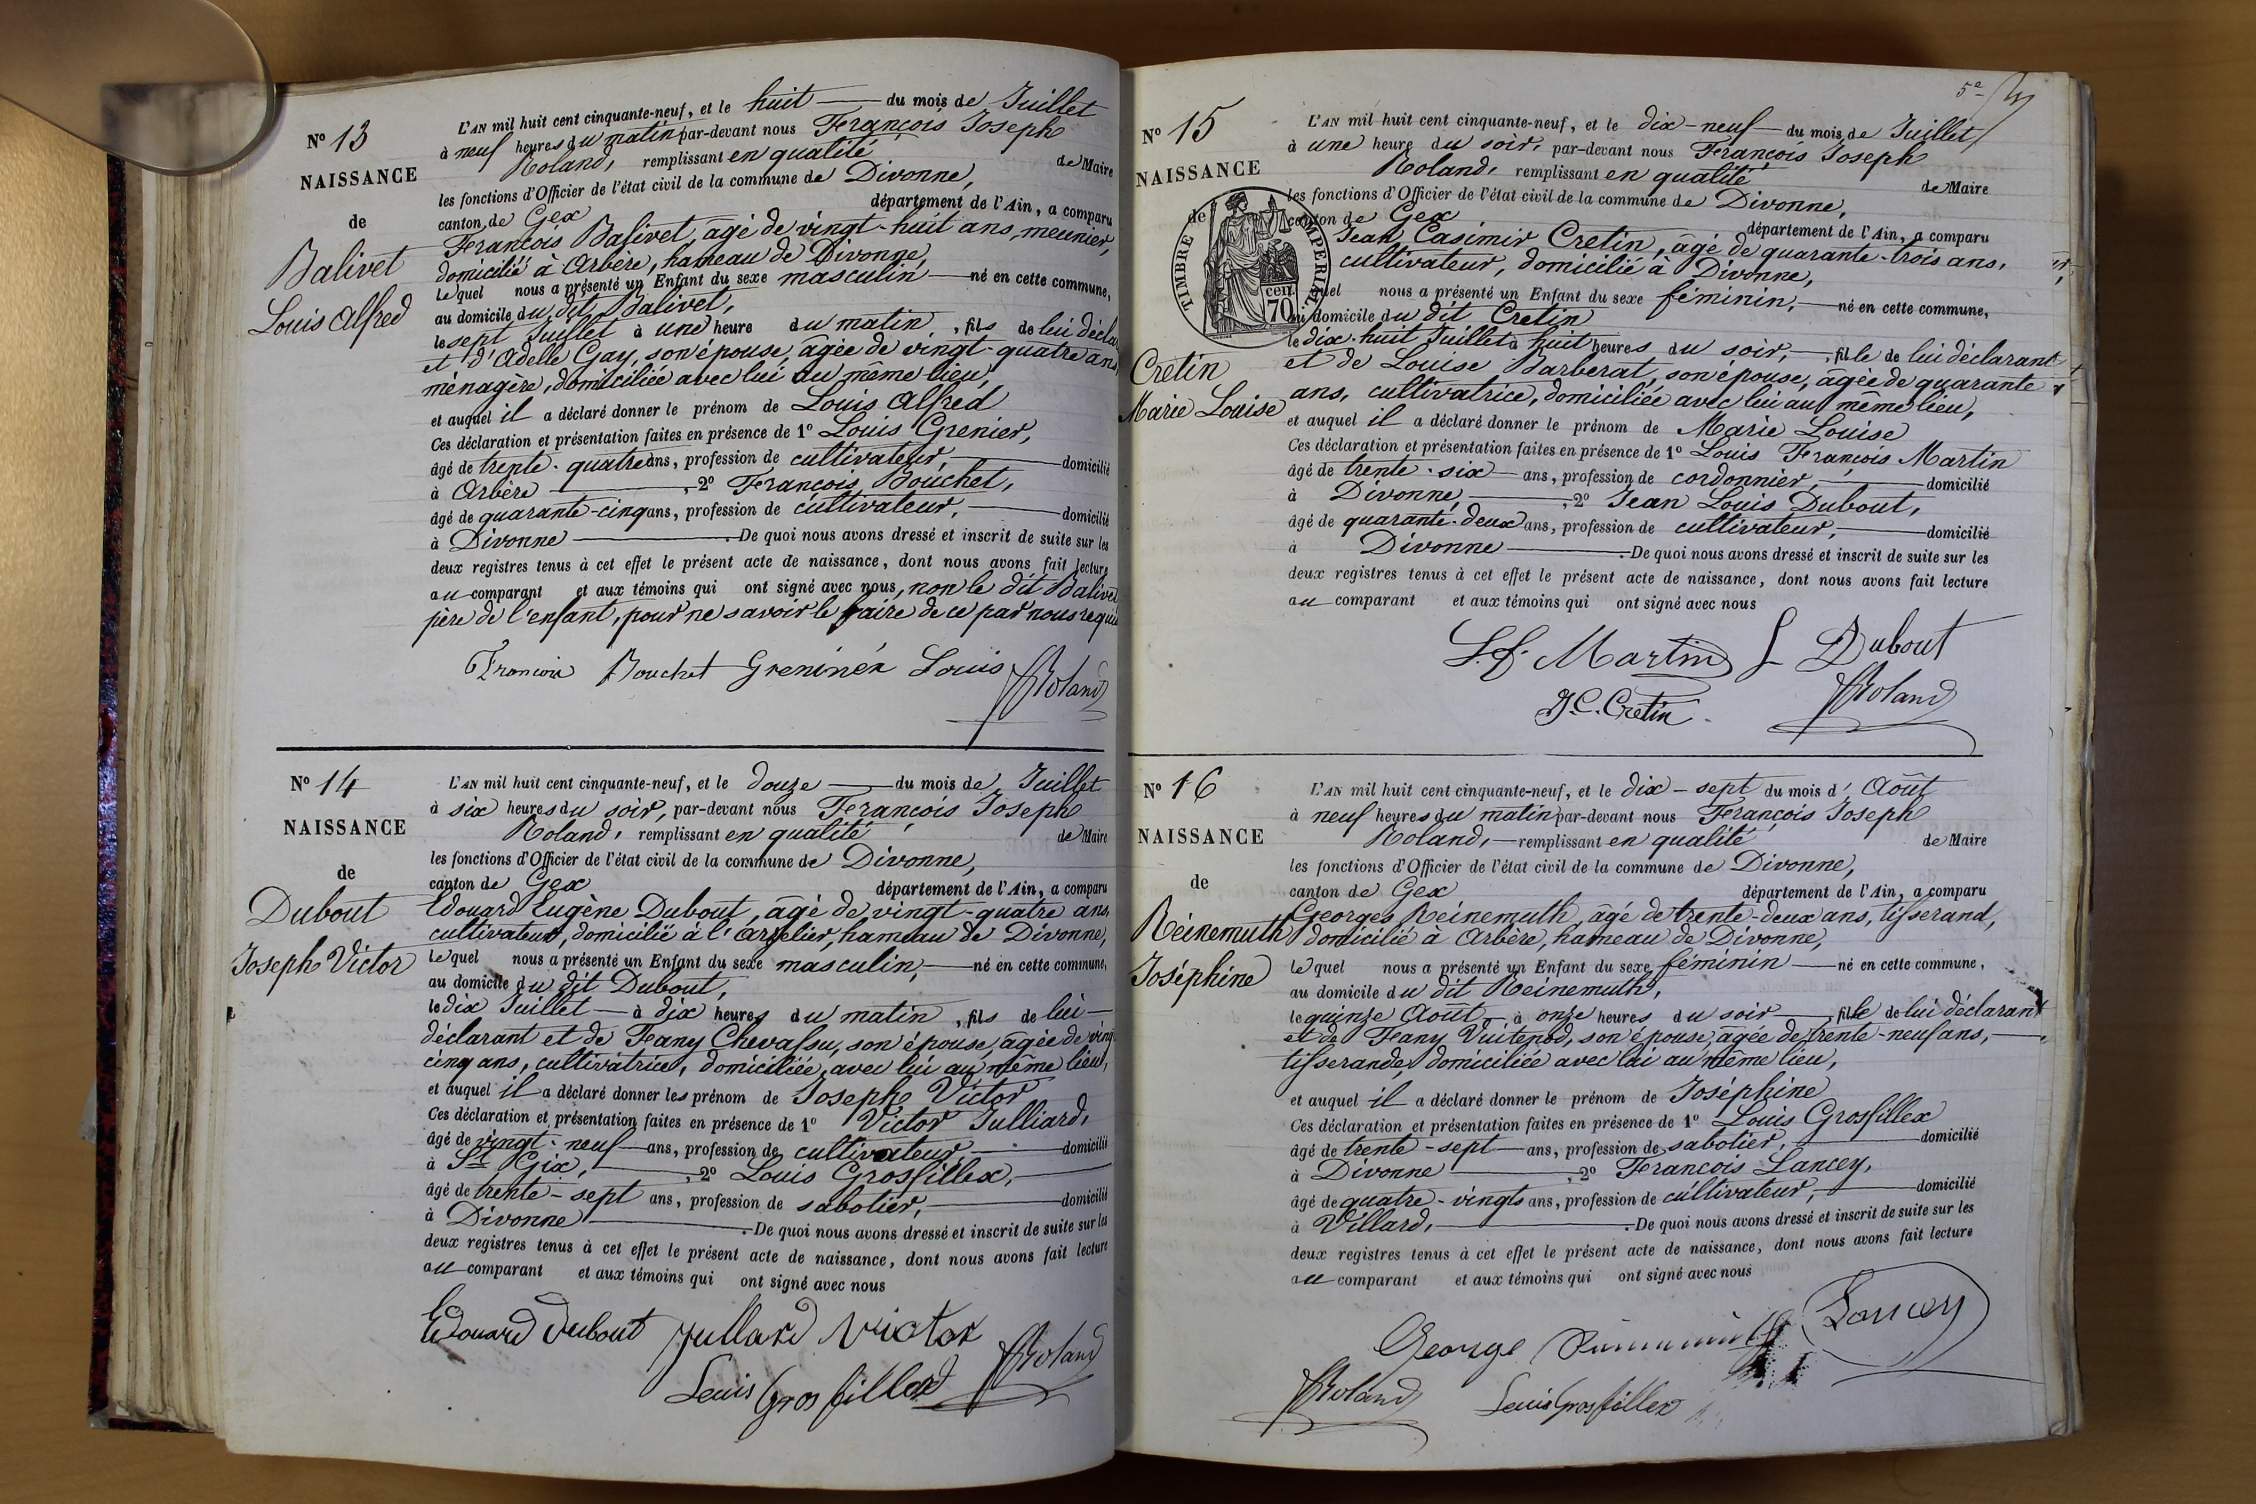 N° 13
NAISSANCE
de
Balivet
Louis Alfred
L'AN mil huit cent cinquante-neuf, et le huit du mois de Juillet
à neuf heures du matin par-devant nous François Joseph
Roland, remplissant en qualité de Maire
les fonctions d'Officier de l'état civil de la commune de Divonne,
canton de Gex département de l'Ain, a comparu
François Balivet, âgé de vingt-huit ans, meunier,
domicilié à Arbère, hameau de Divonne,
lequel nous a présenté un Enfant du sexe masculin né en cette commune,
au domicile du dit Balivet,
le sept Juillet à une heure du matin, fils de lui décla
et d'Adelle Gay, son épouse, âgée de vingt-quatre ans
ménagère, domiciliée avec lui au même lieu,
et auquel il a déclaré donner le prénom de Louis Alfred
Ces déclaration et présentation faites en présence de 1° Louis Grenier,
âgé de trente-quatre ans, profession de cultivateur, domicilié
à Arbère, 2° François Bouchet,
âgé de quarante-cinq ans, profession de cultivateur, domicilié
à Divonne. De quoi nous avons dressé et inscrit de suite sur les
deux registres tenus à cet effet le présent acte de naissance, dont nous avons fait lecture
au comparant et aux témoins qui ont signé avec nous, non le dit Balivet
père de l'enfant, pour ne savoir le faire de ce par nous requis
François Bouchet Greninéx Louis
Roland
N° 14
NAISSANCE
de
Dubout
Joseph Victor
L'AN mil huit cent cinquante-neuf, et le douze du mois de Juillet
à six heures du soir, par-devant nous François Joseph
Roland, remplissant en qualité de Maire
les fonctions d'Officier de l'état civil de la commune de Divonne,
canton de Gex département de l'Ain, a comparu
Edouard Eugène Dubout, âgé de vingt-quatre ans,
cultivateur, domicilié à l'Arzelier, hameau de Divonne,
lequel nous a présenté un Enfant du sexe masculin, né en cette commune,
au domicile du dit Dubout,
le dix Juillet à dix heures du matin, fils de lui
déclarant et de Fany Chevassu, son épouse, âgée de vingt
cinq ans, cultivatrice, domiciliée avec lui au même lieu,
et auquel il a déclaré donner les prénom de Joseph Victor
Ces déclaration et présentation faites en présence de 1° Victor Julliard,
âgé de vingt-neuf ans, profession de cultivateur, domicilié
à St Gix, 2° Louis Grosfillex,
âgé de trente-sept ans, profession de sabotier, domicilié
à Divonne. De quoi nous avons dressé et inscrit de suite sur les
deux registres tenus à cet effet le présent acte de naissance, dont nous avons fait lecture
au comparant et aux témoins qui ont signé avec nous
Edouard Dubout Jullard Victor
Louis Grosfillex Roland
5e
N° 15
NAISSANCE
de
TIMBRE IMPERIAL
70 cen.
Cretin
Marie Louise
L'AN mil huit cent cinquante-neuf, et le dix-neuf du mois de Juillet
à une heure du soir, par-devant nous François Joseph
Roland, remplissant en qualité de Maire
les fonctions d'Officier de l'état civil de la commune de Divonne,
canton de Gex département de l'Ain, a comparu
Jean Casimir Cretin, âgé de quarante-trois ans,
cultivateur, domicilié à Divonne,
lequel nous a présenté un Enfant du sexe féminin, né en cette commune,
au domicile du dit Cretin
le dix-huit Juillet à huit heures du soir, fille de lui déclarant
et de Louise Barberat, son épouse, âgée de quarante
ans, cultivatrice, domiciliée avec lui au même lieu,
et auquel il a déclaré donner le prénom de Marie Louise
Ces déclaration et présentation faites en présence de 1° Louis François Martin
âgé de trente-six ans, profession de cordonnier, domicilié
à Divonne, 2° Jean Louis Dubout,
âgé de quarante-deux ans, profession de cultivateur, domicilié
à Divonne. De quoi nous avons dressé et inscrit de suite sur les
deux registres tenus à cet effet le présent acte de naissance, dont nous avons fait lecture
au comparant et aux témoins qui ont signé avec nous
L. f. Martin L Dubout
J. C. Cretin Roland
N° 16
NAISSANCE
de
Reinemuth
Joséphine
L'AN mil huit cent cinquante-neuf, et le dix-sept du mois d'Août
à neuf heures du matin par-devant nous François Joseph
Roland, remplissant en qualité de Maire
les fonctions d'Officier de l'état civil de la commune de Divonne,
canton de Gex département de l'Ain, a comparu
Georges Reinemuth, âgé de trente-deux ans, tisserand,
domicilié à Arbère, hameau de Divonne,
lequel nous a présenté un Enfant du sexe féminin né en cette commune,
au domicile du dit Reinemuth,
le quinze Août à onze heures du soir, fille de lui déclarant
et de Fany Vuitenod, son épouse, âgée de trente-neuf ans,
tisserande, domiciliée avec lui au même lieu,
et auquel il a déclaré donner le prénom de Joséphine
Ces déclaration et présentation faites en présence de 1° Louis Grosfillex
âgé de trente-sept ans, profession de sabotier, domicilié
à Divonne, 2° François Lancey,
âgé de quatre-vingts ans, profession de cultivateur, domicilié
à Villard. De quoi nous avons dressé et inscrit de suite sur les
deux registres tenus à cet effet le présent acte de naissance, dont nous avons fait lecture
au comparant et aux témoins qui ont signé avec nous
George Lancey
Roland Louis Grosfillex